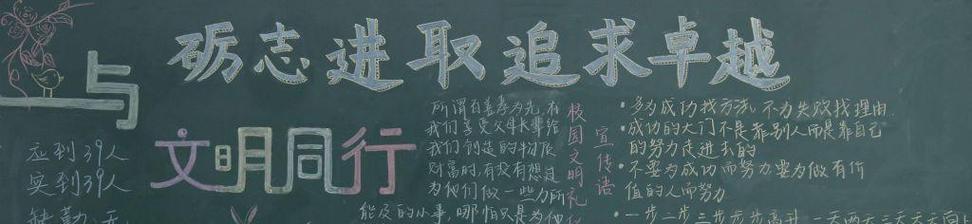 砺志进取追求卓越
与
文明同行
应到39人
实到39人
缺勤:无
所谓百善孝为先,在
我们享受父母长辈给
我们创造的物质
财富时,有没有想过
为他们做一些力所
能及的小事,哪怕只是为他
校园文明礼仪
宣传语
•多为成功找方法,不为失败找理由
•成功的大门不是靠别人而是靠自己
的努力走进去的
•不要为成功而努力要为做有价
值的人而努力
•一步二步三步步步高升